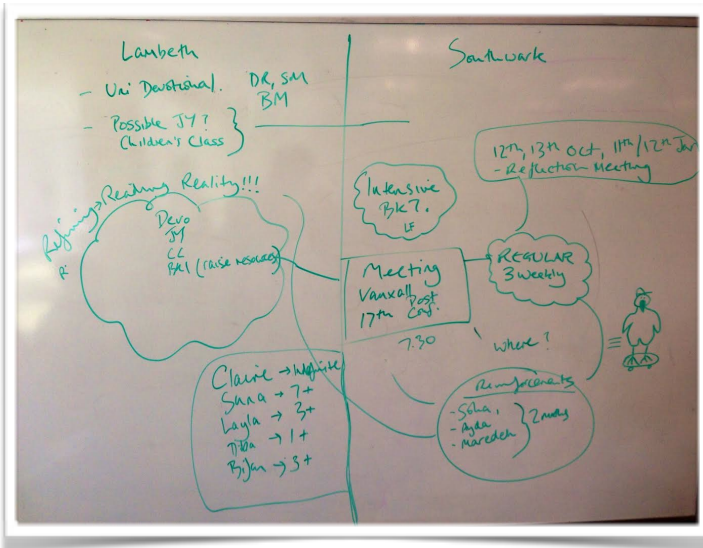 Lambeth
- Uni Devotional.
DR, SM
BM
- Possible JY?
Children's Class
Refining → Reading Reality!!!
Devo
JY
CC
BK1 (raise resources)
Claire → Infinite
Sana → 7+
Layla → 3+
Tiba → 1+
Bijan → 3+
Southwark
12th, 13th Oct, 11th/12th Jan
- Reflection Meeting
Intensive
Bk 7.
LF
Meeting
Vauxall Post
17th Conf.
7.30
REGULAR
3 weekly
where?
Reinforcements
- Soha,
- Ayda
- Maredeh
2 months